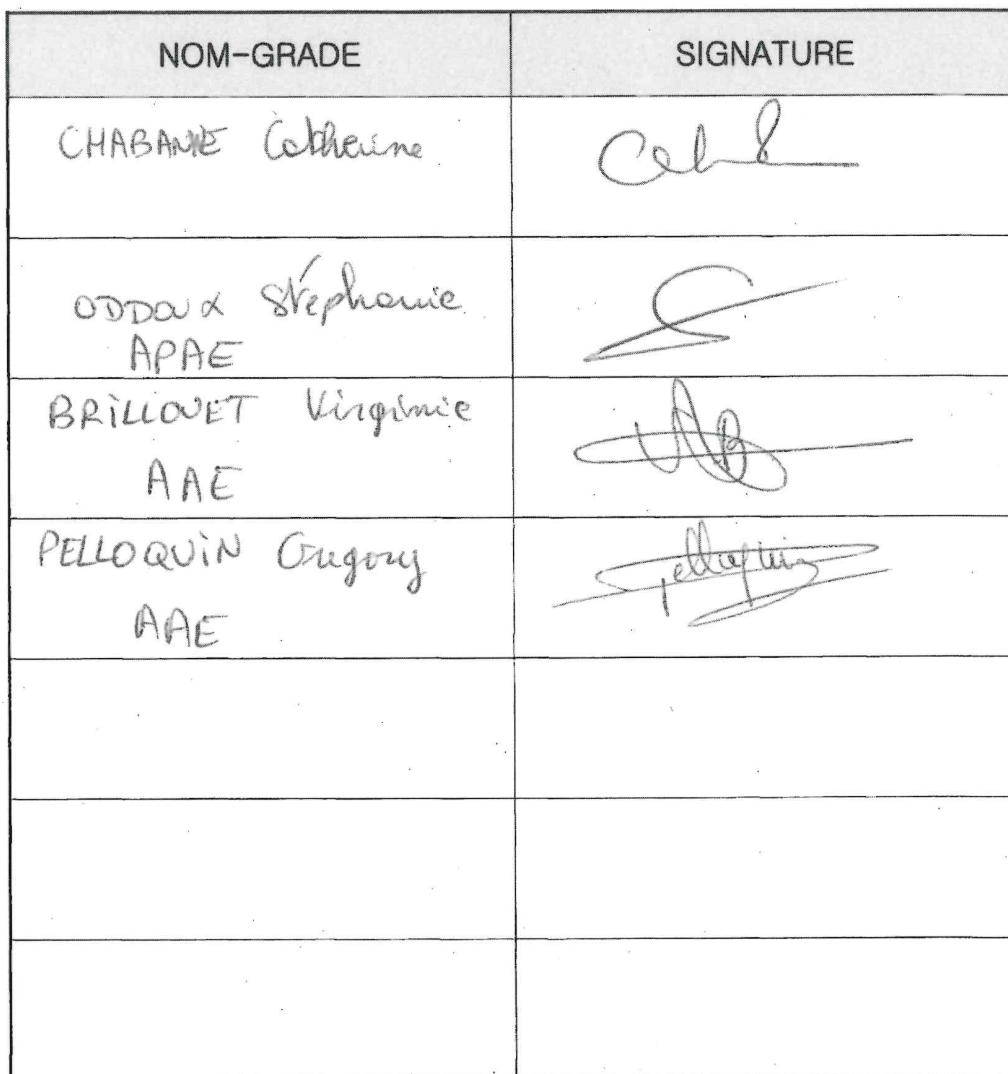 NOM-GRADE SIGNATURE
CHABANNE Catherine
ODDOUX Stéphanie
APAE
BRILLOUET Virginie
AAE
PELLOQUIN Gregory Pelloquin
AAE